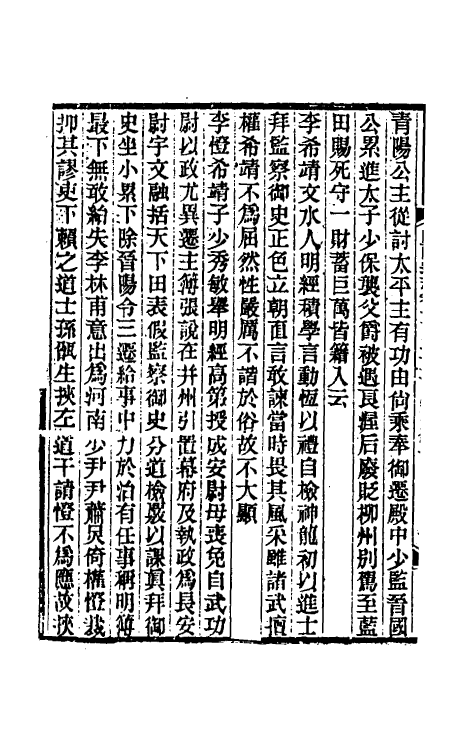 青陽公主從討太平主有功由尙乘奉御遷殿中少監晉國
公累進太子少保襲父爵被遇良渥后廢貶柳州別駕至藍
田賜死守一財蓄巨萬皆籍入云
李希靖文水人明經積學言動恆以禮自檢神龍初以進士
拜監察御史正色立朝直言敢諫當時畏其風采雖諸武擅
權希靖不爲屈然性嚴厲不諧於俗故不大顯
李憕希靖子少秀敏舉明經高第授成安尉母喪免自武功
尉以政尤異遷主簿張說在井州引置幕府及執政爲長安
尉宇文融括天下田表假監察御史分道檢覈以課眞拜御
史坐小累下除晉陽令三遷給事中力於治有任事稱明簿
最下無敢紿失李林甫意出爲河南少尹尹蕭炅倚權憕裁
抑其謬吏下賴之道士孫甑生挾左道干請憕不爲應故挾